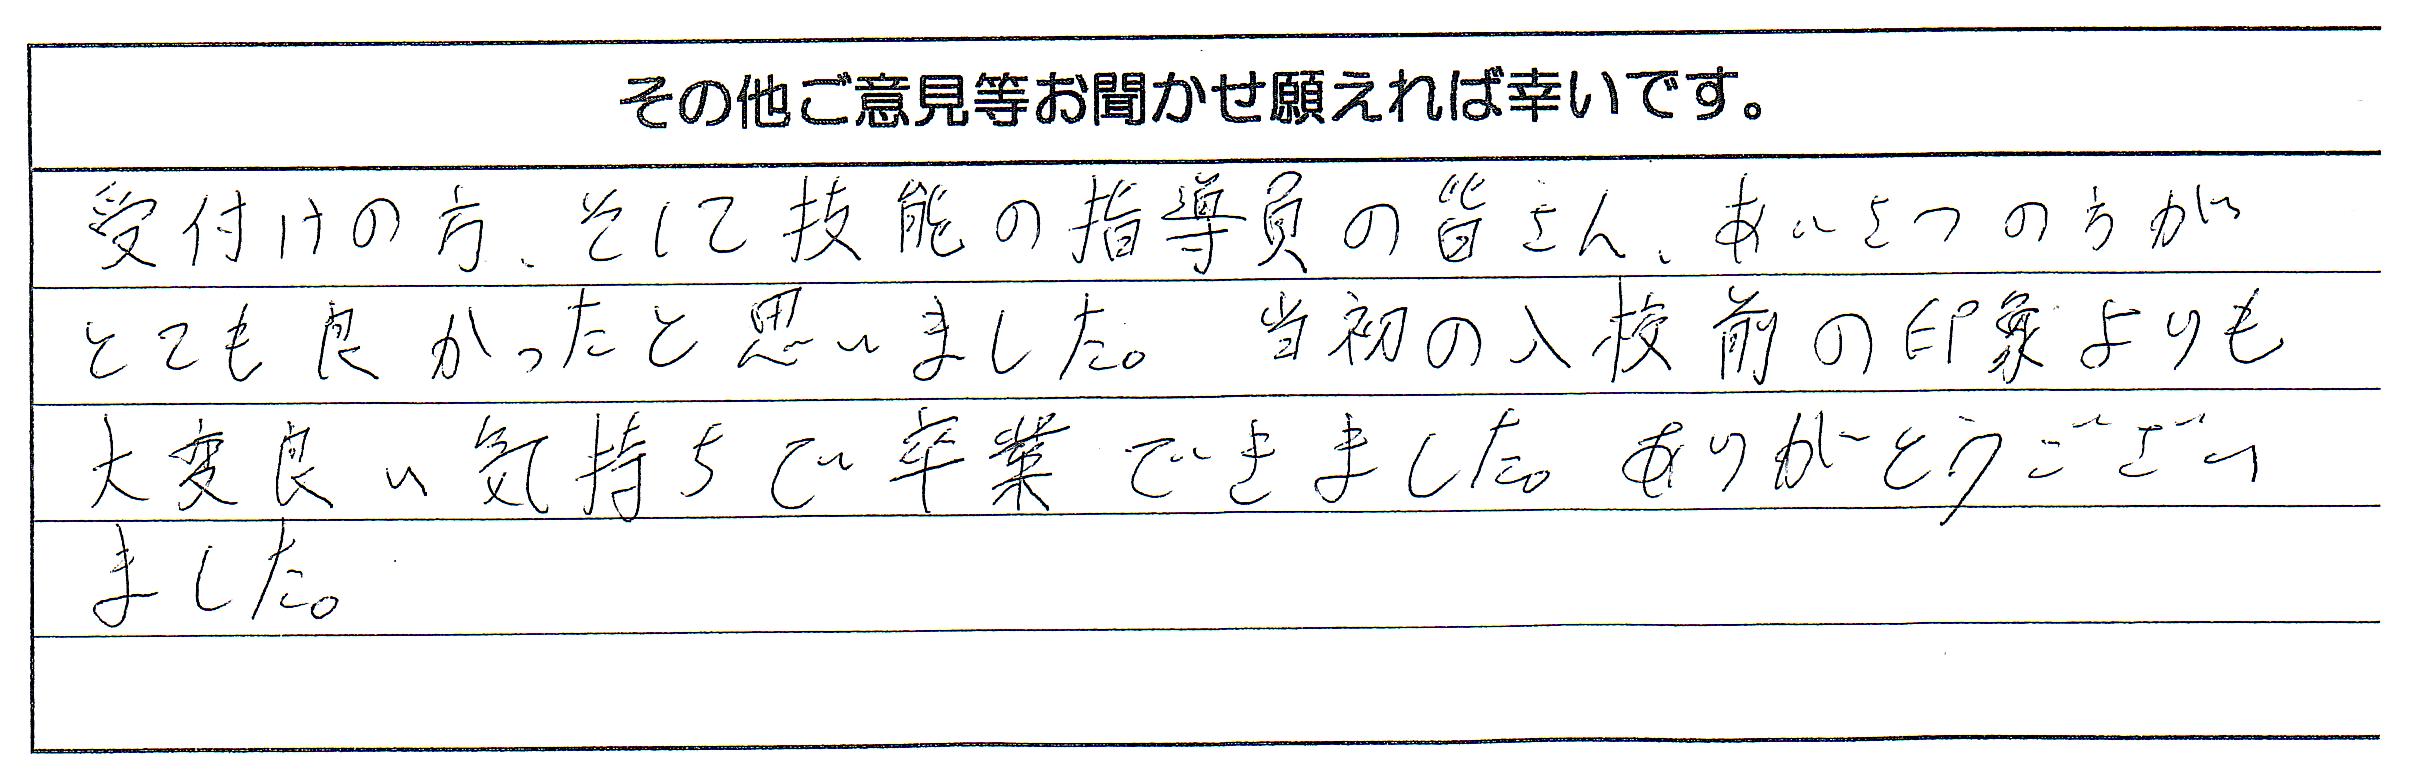 その他ご意見等お聞かせ願えれば幸いです。
受付けの方、そして技能の指導員の皆さん、あいさつの方が
とても良かったと思いました。当初の入校前の印象よりも
大変良い気持ちで卒業できました。ありがとうござい
ました。